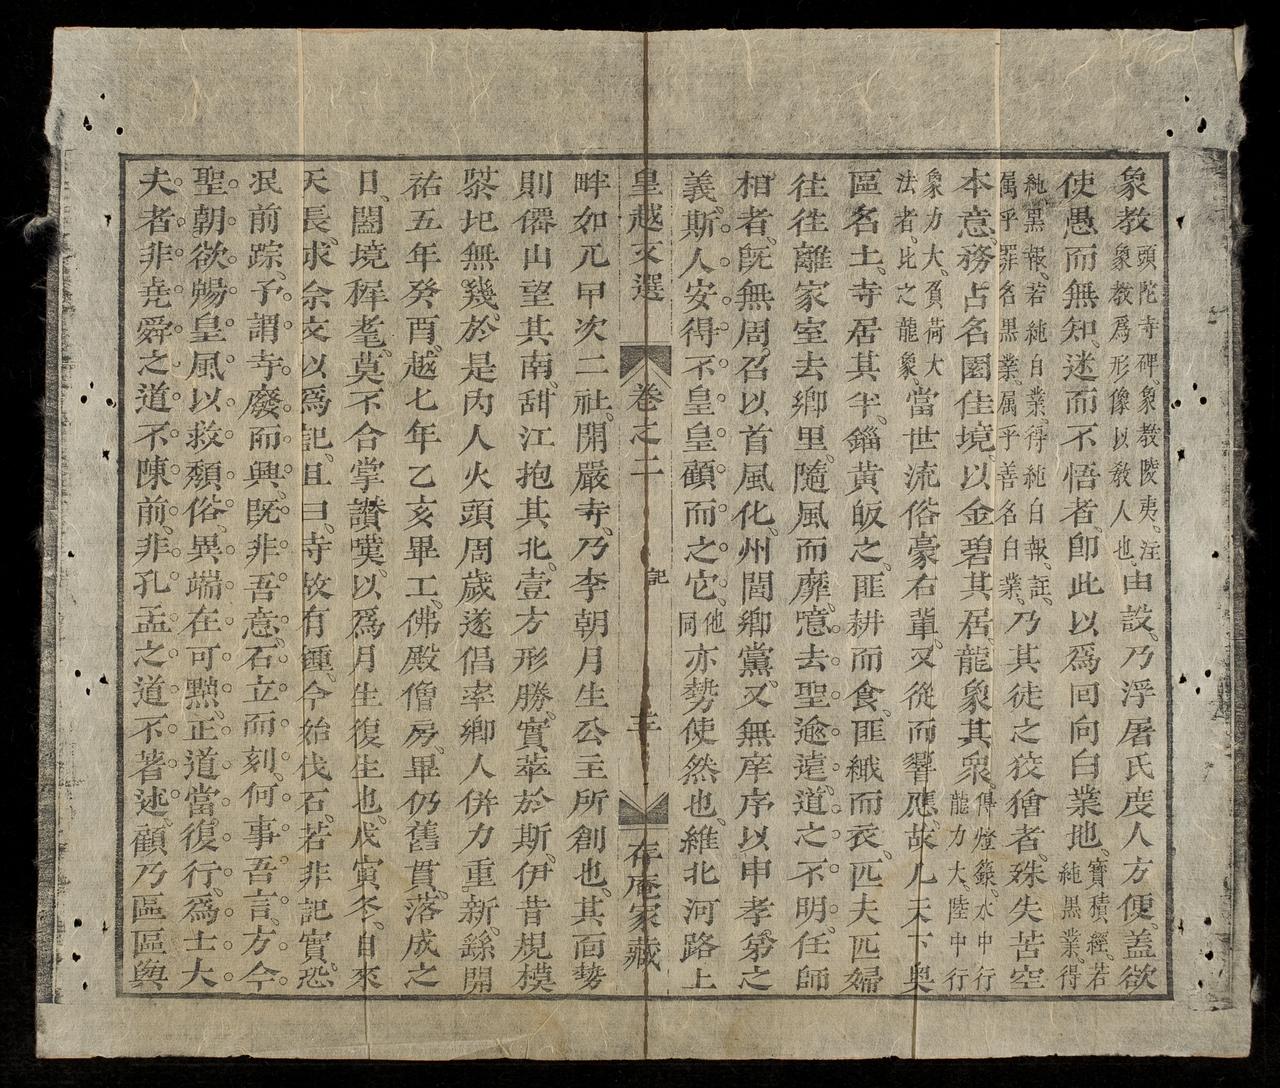 象教頭陀寺碑象教陵夷注象教爲形像以教人也由設乃浮屠氏度人方便蓋欲
使愚而無知迷而不悟者卽此以爲囘向白業地寶積經若純黑業得
純黑報若純白業得純白報註属乎罪名黒業属乎善名白業乃其徒之狡獪者殊失苦空
本意務占名園佳境以金碧其居龍象其衆傳燈錄水中行龍力大陸中行
象力大負荷大法者比之龍象當世流俗豪右輩又從而響應故凡天下奥
區名土寺居其半錙黄皈之匪耕而食匪織而衣匹夫匹婦
往往離家室去鄉里隨風而靡噫去聖逾遠道之不明任師
相者旣無周召以首風化州閭鄉黨又無庠序以申孝弟之
義斯人安得不皇皇顧而之它他同亦勢使然也維北河路上
皇越文選 卷之二 記 三 存庵家藏
畔如元甲次二社開嚴寺乃李朝月生公主所創也其面勢
則僊山望其南甜江抱其北壹方形勝實萃於斯伊昔規模
棊圯無幾於是内人火頭周歲遂倡率鄉人併力重新繇開
祐五年癸酉越七年乙亥畢工佛殿僧房畢仍舊貫落成之
日闔境穉耄莫不合掌讃嘆以爲月生復生也戊寅冬自來
天長求余文以爲記且曰寺故有鍾今始伐石若非記實恐
泯前踪予謂寺廢而興既非吾意石立而刻何事吾言方今
聖朝欲暢皇風以救頽俗異端在可黜正道當復行爲士大
夫者非堯舜之道不陳前非孔孟之道不著述顧乃區區與